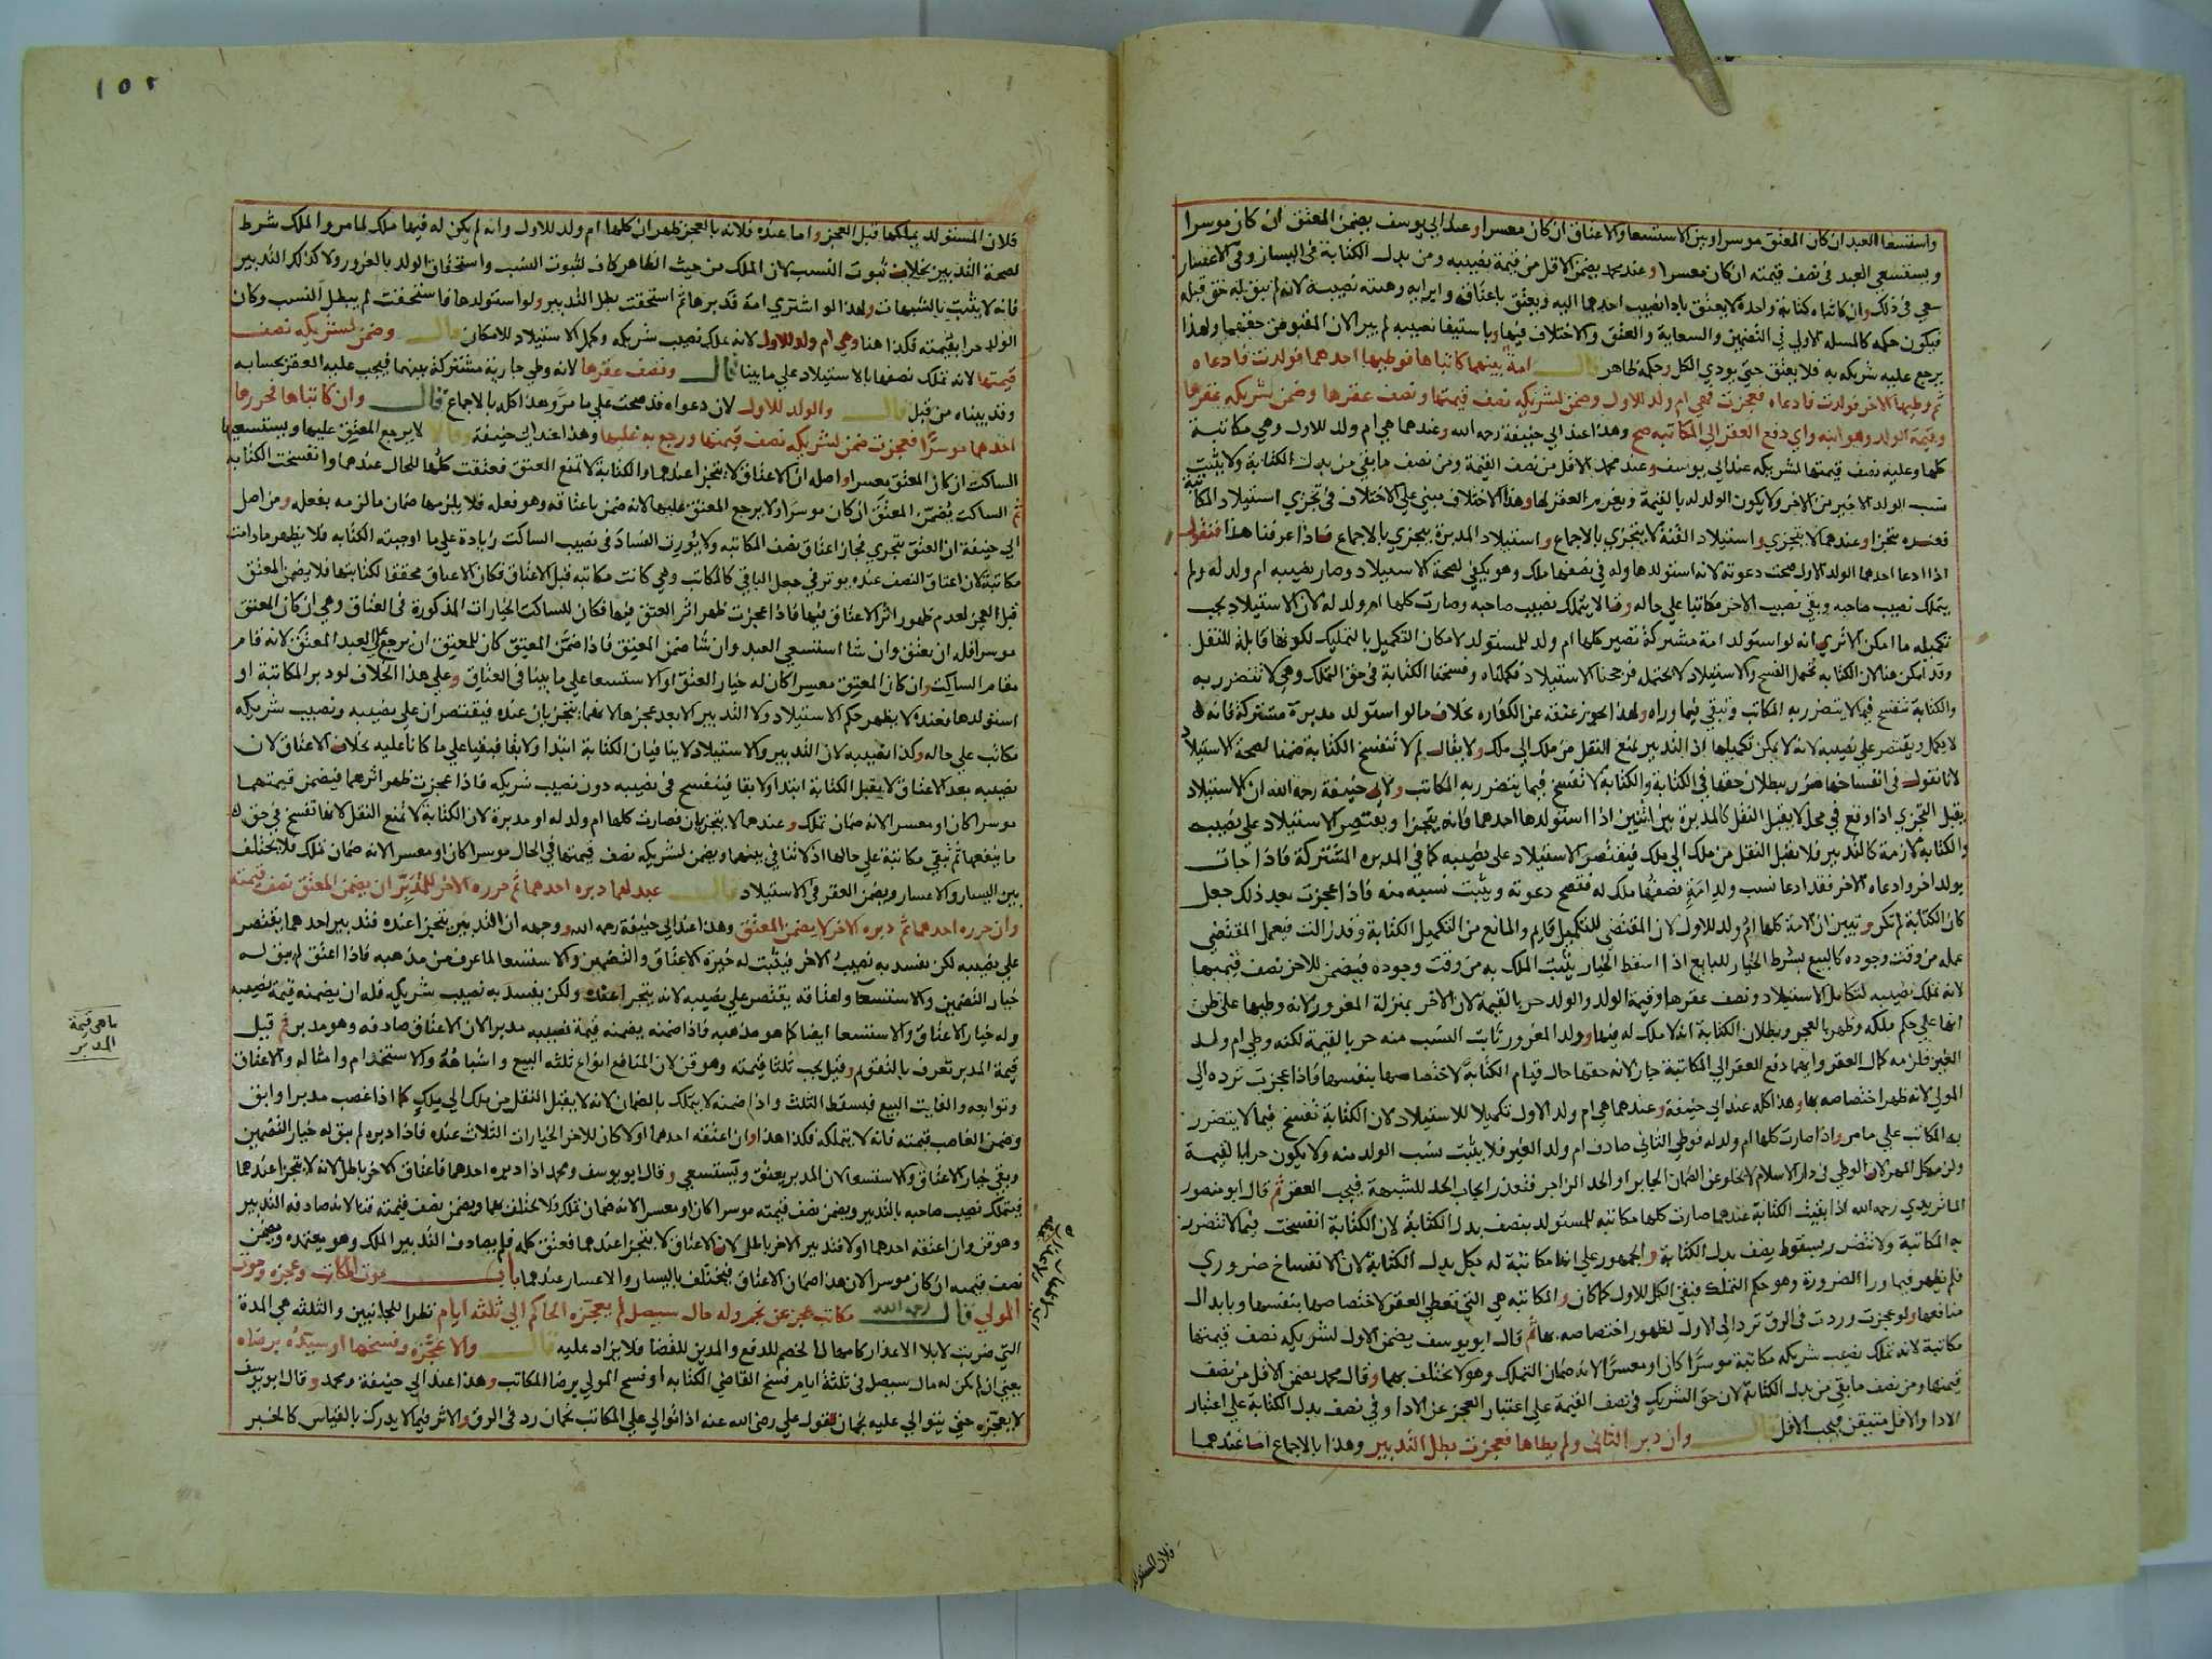 واستسعا العبد ان كان المعتق موسرا وبين الاستسعا والاعتاق ان كان معسرا وعند ابي يوسف يضمن المعتق ان كان موسرا
ويستسعي العبد في نصف قيمته ان كان معسرا وعند محمد يضمن الاقل من قيمة نصيبه ومن بدل الكتابة في اليسار وفي الاعسار
سعي في ذلك وان كاتباه كتابة واحدة لا يعتق بادا نصيب احدهما اليه ويعتق باعتاقه وابرايه وهبته نصيبه لانه لم يبق له حق قبله
فيكون حكمه كالمسله الاولي في التضمين والسعاية والعتق والاختلاف فيها وباستيفا نصيبه لم يبرا لان المقبوض من حقهما ولهذا
يرجع عليه شريكه به فلا يعتق حتي يودي الكل وحكمه ظاهر قال امة بينهما كاتباها فوطيها احدهما فولدت فادعاه
ثم وطيها الاخر فولدت فادعاه فعجزت فهي ام ولد للاول وضمن لشريكه نصف قيمتها ونصف عقرها وضمن شريكه عقرها
وقيمة الولد وهو ابنه واي دفع العقر الي المكاتبه صح وهذا عند ابي حنيفة رحمه الله وعندهما هي ام ولد للاول وهي مكاتبة
كلها وعليه نصف قيمتها لشريكه عند ابي يوسف وعند محمد الاقل من نصف القيمة ومن نصف ما بقي من بدل الكتابة ولا يثبت
نسب الولد الاخير من الاخر ولا يكون الولد له بالقيمة ويغرم العقر لها وهذا الاختلاف مبني علي الاختلاف في تجزي استيلاد المكاتبة
فعنده يتجزا وعندهما لا يتجزي واستيلاد القنة لا يتجزي بالاجماع واستيلاد المدبرة يتجزي بالاجماع فاذا عرفنا هذا فنقول
اذا ادعا احدهما الولد الاول صحت دعوته لانه استولدها وله في نصفها ملك وهو يكفي لصحة الاستيلاد وصار نصيبه ام ولد له ولم
يتملك نصيب صاحبه وبقي نصيب الاخر مكاتبا علي حاله وقالا يتملك نصيب صاحبه وصارت كلها ام ولد له لان الاستيلاد يجب
تكميله ما امكن الا تري انه لو استولد امة مشتركة تصير كلها ام ولد للمستولد لامكان التكميل بالتمليك لكونها قابلة للنقل
وقد امكن هنا لان الكتابه تحتمل الفسخ والاستيلاد لا يحتمله فرجحنا الاستيلاد فكملناه وفسخنا الكتابة في حق التملك وهي لا تتضرر به
والكتابة تنفسخ فيما لا يتضرر به المكاتب وتبقي فيما وراه ولهذا يجوز عتقه عن الكفاره بخلاف ما لو استولد مدبرة مشتركة فانه
لا يكمل ويقتصر علي نصيبه لانه لا يمكن تكميلها اذ التدبير يمنع النقل من ملك الي ملك ولا يقال لم لا تنفسخ الكتابة ضمنا لصحة الاستيلاد
لانا نقول في انفساخها ضرر ببطلان حقها في الكتابة والكتابة لا تفسخ فيما يتضرر به المكاتب ولابي حنيفة رحمه الله ان الاستيلاد
يقبل التجزي اذا وقع في محل لا يقبل النقل كالمدبرة بين اثنين اذا استولدها احدهما فانه يتجزا ويقتصر الاستيلاد علي نصيبه
والكتابة لازمة كالتدبير فلا تقبل النقل من ملك الي ملك فيقتصر الاستيلاد علي نصيبه كما في المدبره المشتركة فاذا جات
بولد اخر وادعاه الاخر فقد ادعا نسب ولد امة نصفها ملك له فتصح دعوته ويثبت نسبه منه فاذا عجزت بعد ذلك جعل
كان الكتابة لم تكن وتبين ان الامة كلها ام ولد للاول لان المقتضي للتكميل قايم والمانع من التكميل الكتابة وقد زالت فيعمل المقتضي
عمله من وقت وجوده كالبيع بشرط الخيار للبايع اذا اسقط الخيار يثبت الملك به من وقت وجوده فيضمن للاخر نصف قيمتها
لانه تملك نصيبه لتكامل الاستيلاد ونصف عقرها وقيمة الولد والولد حر بالقيمة لان الاخر بمنزلة المغرور لانه وطيها علي ظن
انها علي حكم ملكه وظهر بالعجز وبطلان الكتابة انه لا ملك له فيها وولد المغرور ثابت النسب منه حر بالقيمة لكنه وطي ام ولد
الغير فلزمه كمال العقر وايهما دفع العقر الي المكاتبة جاز لانه حقها حال قيام الكتابة لاختصاصها بنفسها فاذا عجزت ترده الي
المولي لانه ظهر اختصاصه بها وهذا كله عند ابي حنيفة وعندهما هي ام ولد الاول تكميلا للاستيلاد لان الكتابة تفسخ فيما لا يتضرر
به المكاتب علي ما مر واذا صارت كلها ام ولد له فوطي الثاني صادف ام ولد الغير فلا يثبت نسب الولد منه ولا يكون حرا بالقيمة
ولزم كل المهر لان الوطي في دار الاسلام لا يخلو عن الضمان الجابر او الحد الزاجر فتعذر ايجاب الحد للشبهة فيجب العقر ثم قال ابو منصور
الماتريدي رحمه الله اذا بقيت الكتابة عندهما صارت كلها مكاتبه للمستولد بنصف بدل الكتابة لان الكتابة انفسخت فيما لا تتضرر
به المكاتبة ولا تتضرر بسقوط نصف بدل الكتابة والجمهور علي انها مكاتبة له بكل بدل الكتابة لان الانفساخ ضروري
فلم يظهر فيما ورا الضرورة وهو حكم التملك فبقي الكل للاول كما كان والمكاتبه هي التي تعطي العقر لاختصاصها بنفسها وبابدال
منافعها ولو عجزت وردت في الرق ترد الي الاول لظهور اختصاصه بها ثم قال ابو يوسف يضمن الاول لشريكه نصف قيمتها
مكاتبة لانه تملك نصيب شريكه مكاتبة موسرا كان او معسرا لانه ضمان التملك وهو لا يختلف بهما وقال محمد يضمن الاقل من نصف
قيمتها ومن نصف ما بقي من بدل الكتابة لان حق الشريك في نصف القيمة علي اعتبار العجز عن الادا وفي نصف بدل الكتابة علي اعتبار
الادا والاقل متيقن فيجب الاقل قال وان دبر الثاني ولم يطاها فعجزت بطل التدبير وهذا بالاجماع اما عندهما
فلان المستولد
١٥٢
فلان المستولد يملكها قبل العجز واما عنده فلانه بالعجز ظهر ان كلها ام ولد للاول وانه لم يكن له فيها ملك لما مر والملك شرط
لصحة التدبير بخلاف ثبوت النسب لان الملك من حيث الظاهر كاف لثبوت النسب واستحقاق الولد بالغرور ولا كذلك التدبير
فانه لا يثبت بالشبهات ولهذا لو اشتري امة فدبرها ثم استحقت بطل التدبير ولو استولدها فاستحقت لم يبطل النسب وكان
الولد حرا بقيمته فكذا هنا وهي ام ولد للاول لانه تملك نصيب شريكه وكمل الاستيلاد للامكان قال وضمن لشريكه نصف
قيمتها لانه تملك نصفها بالاستيلاد علي ما بينا قال ونصف عقرها لانه وطي جارية مشتركة بينهما فيجب عليه العقر بحسابه
وقد بيناه من قبل قال والولد للاول لان دعواه قد صحت علي ما مر وهذا كله بالاجماع قال وان كاتباها فحررها
احدهما موسرا فعجزت ضمن لشريكه نصف قيمتها ورجع به عليها وهذا عند ابي حنيفة وقالا لا يرجع المعتق عليها ويستسعيها
الساكت ان كان المعتق معسرا واصله ان الاعتاق لا يتجزا عندهما والكتابة لا تمنع العتق فعتقت كلها للحال عندهما وانفسخت الكتابة
ثم الساكت يضمن المعتق ان كان موسرا ولا يرجع المعتق عليها لانه ضمن باعتاقه وهو فعله فلا يلزمها ضمان ما لزمه بفعله ومن اصل
ابي حنيفة ان العتق يتجزي فجاز اعتاق نصف المكاتبه ولا يورث الفساد في نصيب الساكت زيادة علي ما اوجبته الكتابه فلا يظهر ما دامت
مكاتبة لان اعتاق النصف عنده يوثر في جعل الباقي كالمكاتب وهي كانت مكاتبه قبل الاعتاق فكان الاعتاق محققا لكتابتها فلا يضمن المعتق
قبل العجز لعدم ظهور اثر الاعتاق فيها فاذا عجزت ظهر اثر العتق فيها فكان للساكت الخيارات المذكورة في العتاق وهي ان كان المعتق
موسرا فله ان يعتق وان شا استسعي العبد وان شا ضمن المعتق فاذا ضمن المعتق كان للمعتق ان يرجع علي العبد المعتق لانه قام
مقام الساكت وان كان المعتق معسرا كان له خيار العتق او الاستسعا علي ما بينا في العتاق وعلي هذا الخلاف لو دبر المكاتبة او
استولدها فعنده لا يظهر حكم الاستيلاد ولا التدبير الا بعد عجزها لانهما يتجزيان عنده فيقتصران علي نصيبه ونصيب شريكه
مكاتب علي حاله وكذا نصيبه لان التدبير والاستيلاد لا ينافيان الكتابة ابتدا ولا بقا فبقيا علي ما كانا عليه بخلاف الاعتاق لان
نصيبه بعد الاعتاق لا يقبل الكتابة ابتدا ولا بقا فينفسخ في نصيبه دون نصيب شريكه فاذا عجزت ظهر اثرهما فيضمن قيمتهما
موسرا كان او معسرا لانه ضمان تملك وعندهما لا يتجزيان فصارت كلها ام ولد له او مدبرة لان الكتابة لا تمنع النقل لانها تفسخ في حق
ما ينفعها ثم تبقي مكاتبة علي حالها اذ لا تنافي بينهما ويضمن لشريكه نصف قيمتها في الحال موسرا كان او معسرا لانه ضمان تملك فلا يختلف
بين اليسار والاعسار ويضمن العقر في الاستيلاد قال عبد لهما دبره احدهما ثم حرره الاخر للمدبر ان يضمن المعتق نصف قيمته
وان حرره احدهما ثم دبره الاخر لا يضمن المعتق وهذا عند ابي حنيفة رحمه الله ووجهه ان التدبير يتجزا عنده فتدبير احدهما يقتصر
علي نصيبه لكن يفسد به نصيب الاخر فيثبت له خيرة الاعتاق والتضمين والاستسعا لما عرف من مذهبه فاذا اعتق لم يبق له
خيار التضمين والاستسعا واعتاقه يقتصر علي نصيبه لانه يتجزا عنده ولكن يفسد به نصيب شريكه فله ان يضمنه قيمة نصيبه
وله خيار الاعتاق والاستسعا ايضا كما هو مذهبه فاذا ضمنه يضمنه قيمة نصيبه مدبرا لان الاعتاق صادفه وهو مدبر ثم قيل
قيمة المدبر تعرف بالتقويم وقيل يجب ثلثا قيمته وهو قن لان المنافع انواع ثلثه البيع واشباهه والاستخدام وامثاله والاعتاق
وتوابعه والفايت البيع فيسقط الثلث واذا ضمنه لا يتملك بالضمان لانه لا يقبل النقل من ملك الي ملك كما اذا غصب مدبرا وابق
وضمن الغاصب قيمته فانه لا يتملكه فكذا هذا وان اعتقه احدهما اولا كان للاخر الخيارات الثلاث عنده فاذا دبره لم يبق له خيار التضمين
وبقي خيار الاعتاق والاستسعا لان المدبر يعتق ويستسعي وقال ابو يوسف ومحمد اذا دبره احدهما فاعتاق الاخر باطل لانه لا يتجزا عندهما
فيتملك نصيب صاحبه بالتدبير ويضمن نصف قيمته موسرا كان او معسرا لانه ضمان تملك فلا يختلف بهما ويضمن نصف قيمته قنا لانه صادفه التدبير
وهو قن وان اعتقه احدهما اولا فتدبير الاخر باطل لان الاعتاق لا يتجزا عندهما فعتق كله فلم يصادف التدبير الملك وهو يعتمده ويضمن
نصف قيمته ان كان موسرا لان هذا ضمان الاعتاق فيختلف باليسار والاعسار عندهما باب موت المكاتب وعجزه وموت
المولي قال رحمه الله مكاتب عجز عن نجم وله مال سيصل لم يعجزه الحاكم الي ثلثه ايام نظرا للجانبين والثلثه هي المدة
التي ضربت لابلا الاعذار كامهال الخصم للدفع والمدين للقضا فلا يزاد عليه قال والا عجزه وفسخها او سيده برضاه
يعني ان لم يكن له مال سيصل في ثلثة ايام فسخ القاضي الكتابه او فسخ المولي برضا المكاتب وهذا عند ابي حنيفة ومحمد وقال ابو يوسف
لا يعجزه حتي يتوالي عليه نجمان لقول علي رضي الله عنه اذا توالي علي المكاتب نجمان رد في الرق والاثر فيما لا يدرك بالقياس كالخبر
ما هي قيمة
المدبر